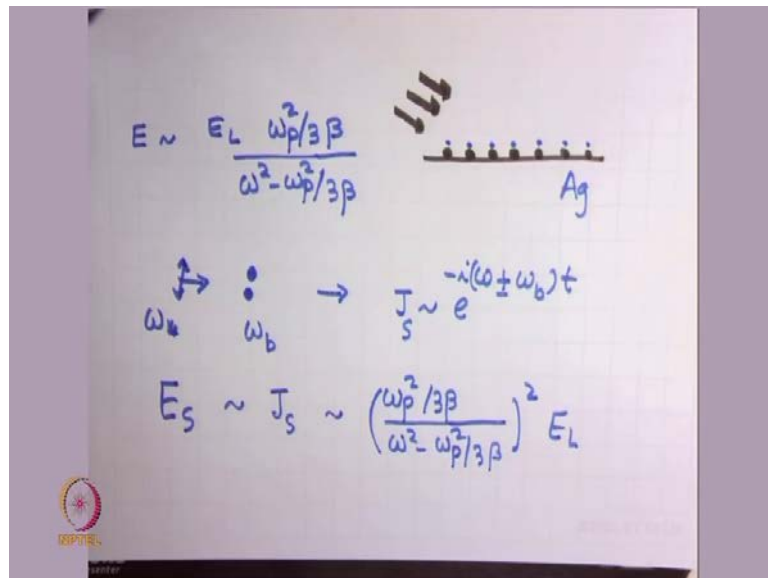 E ~ E_L (ω_p²/3β) / (ω² - ω_p²/3β)
Ag
ω ω_b → J_S ~ e^{-i(ω ± ω_b)t}
E_S ~ J_S ~ ((ω_p²/3β) / (ω² - ω_p²/3β))² E_L
NPTEL